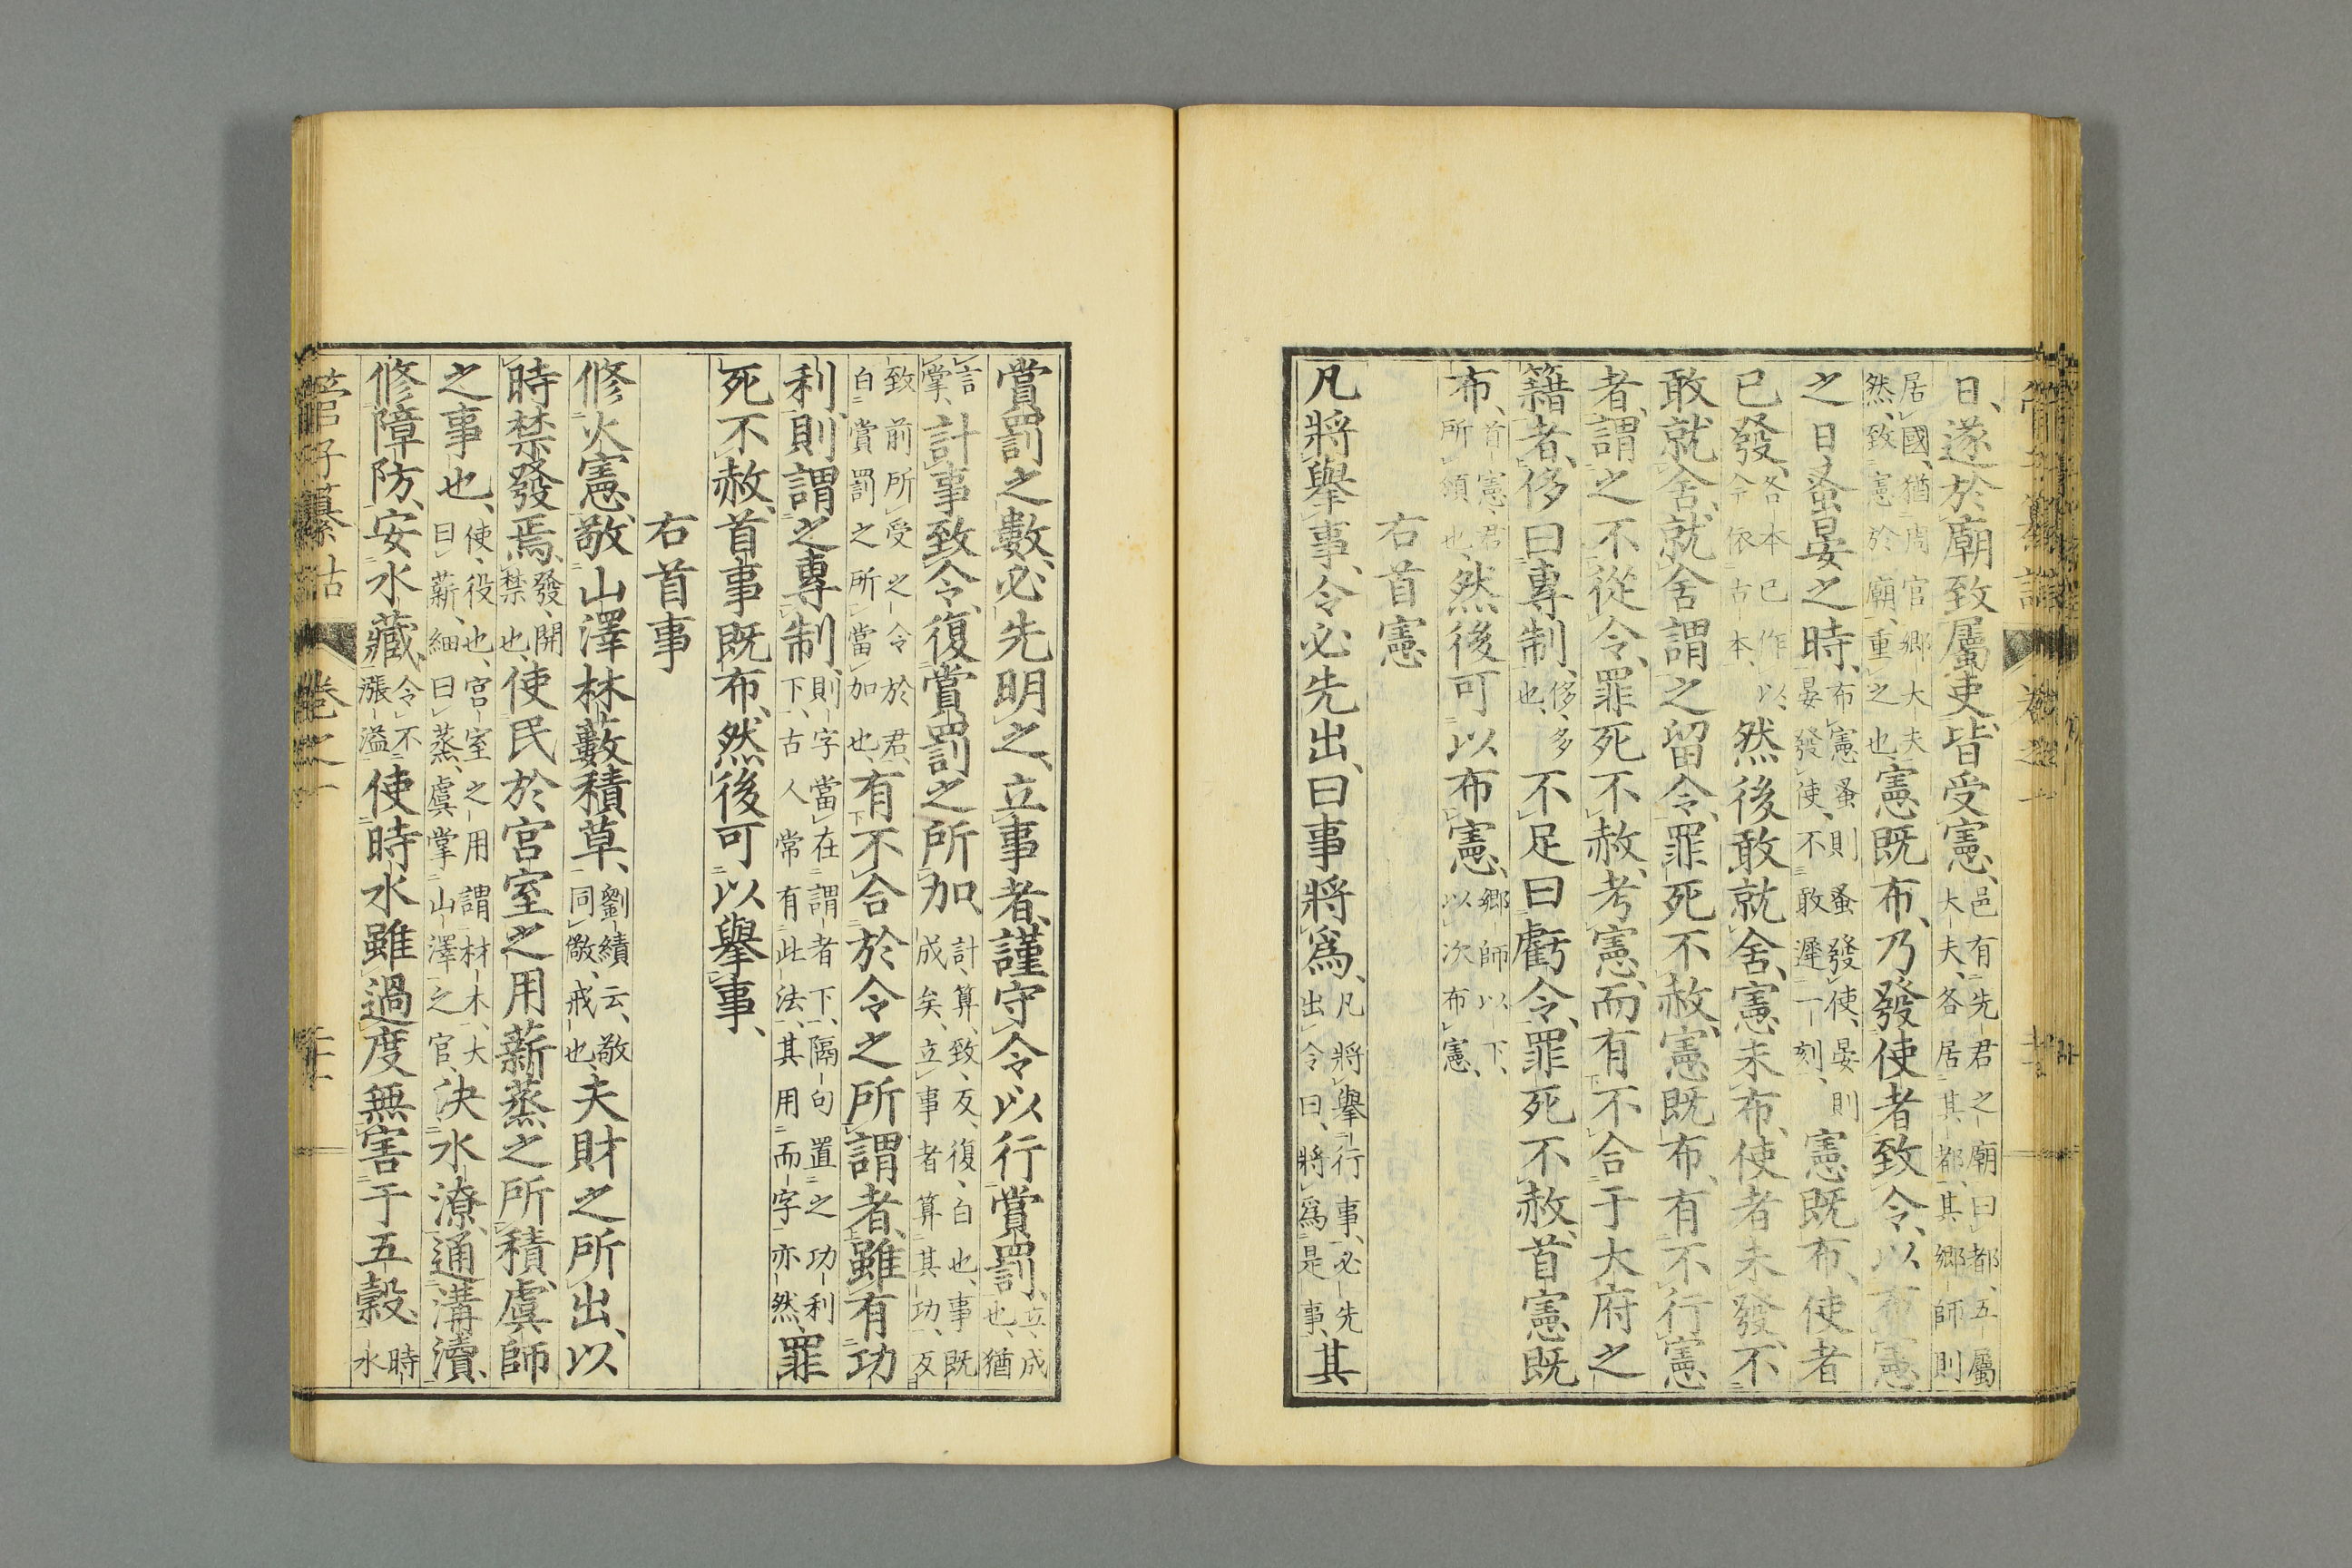 日、遂於廟致屬吏、皆受憲、邑有先君之廟曰都、五屬大夫、各居其都、其鄉師則
居國、猶周官鄉大夫然、致憲於廟、重之也、憲既布、乃發使者致令、以布憲
之日蚤晏之時、布憲蚤則蚤發使、晏則晏發使、不敢遲一刻、憲既布、使者
已發、各本已作以、今依古本、然後敢就舍、憲未布、使者未發、不
敢就舍、就舍謂之留令、罪死不赦、憲既布、有不行憲
者、謂之不從令、罪死不赦、考憲、而有不合于大府之
籍者、侈曰專制、侈、多也、不足曰虧令、罪死不赦、首憲既
布、首憲、君所頒也、然後可以布憲、鄉師以下、以次布憲、
右首憲
凡將舉事、令必先出、曰事將爲、凡將舉行事、必先出令曰、將爲是事、其
賞罰之數、必先明之、立事者、謹守令以行賞罰、立、成也、猶
言掌、計事致令、復賞罰之所加、計、算、致、反、復、白也、事既成矣、立事者算其功、反
致前所受之令於君、白賞罰之所當加也、有不合於令之所謂者、雖有功
利、則謂之專制、則字當在謂者下、隔句置之功利下、古人常有此法、其用而字亦然、罪
死不赦、首事既布、然後可以舉事、
右首事
修火憲、敬山澤林藪積草、劉績云、敬同儆、戒也、夫財之所出、以
時禁發焉、發、開禁也、使民於宮室之用薪蒸之所積、虞師
之事也、使、役也、宮室之用謂材木、大曰薪、細曰蒸、虞掌山澤之官、決水潦、通溝瀆、
修障防、安水藏、令不漲溢、使時水雖過度無害于五穀、時水
管子纂詁 卷之一